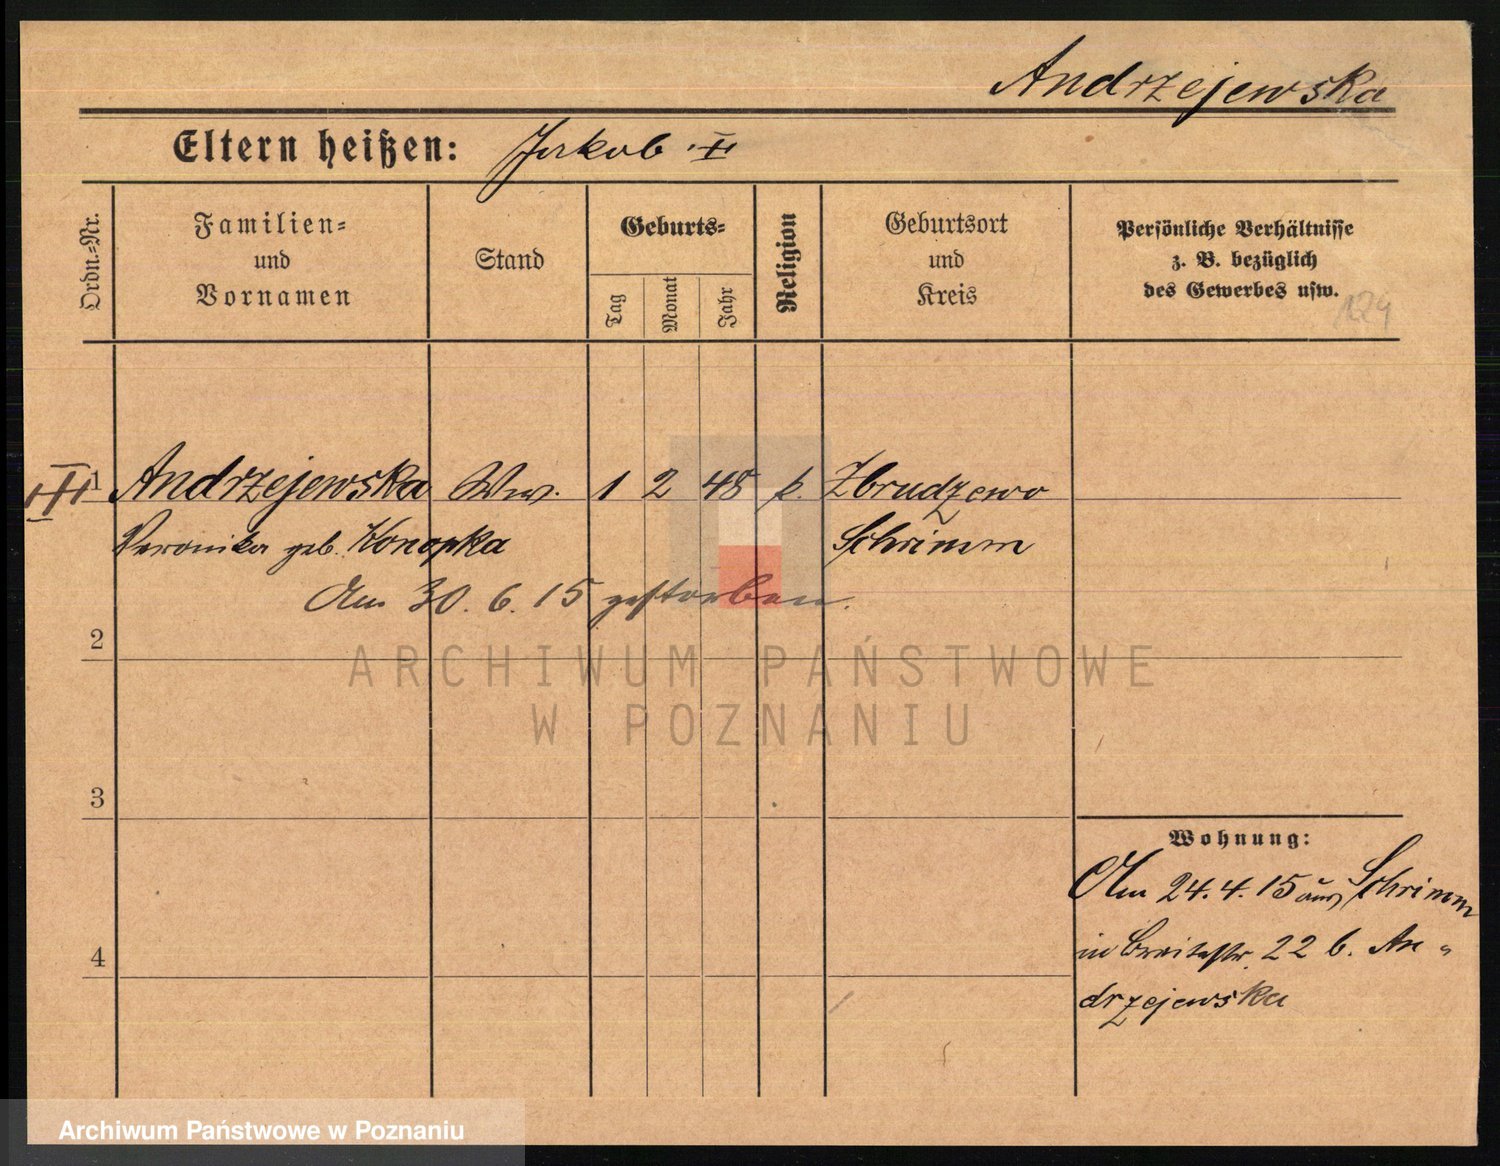 Andrzejewska
Eltern heißen: Jakob
Ordn.-Nr.
Familien-
und
Vornamen
Stand
Geburts-
Tag
Monat
Jahr
Religion
Geburtsort
und
Kreis
Persönliche Verhältnisse
z. B. bezüglich
des Gewerbes usw.
124
1 Andrzejewska Ww. 1 2 48 k. Zbrudzewo
Veronika geb. Konopka Schrimm
Am 30. 6. 15 gestorben.
2
ARCHIWUM PAŃSTWOWE
W POZNANIU
3
Wohnung:
Am 24. 4. 15 aus Schrimm
in Breitestr. 22 b. An-
drzejewska
4
Archiwum Państwowe w Poznaniu